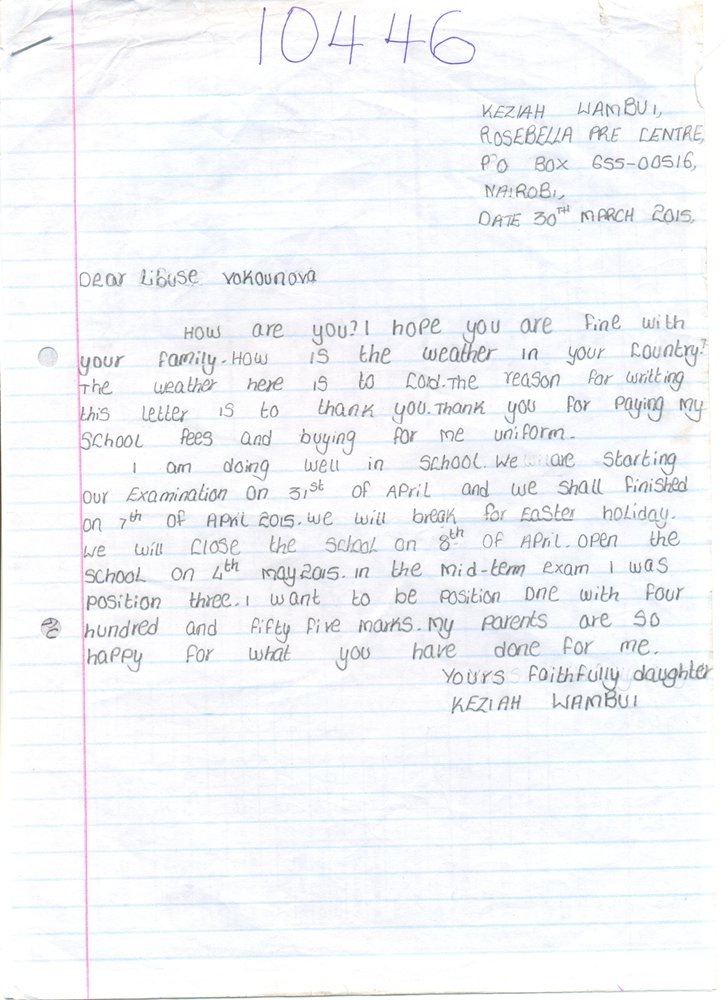 10446
KEZIAH WAMBUI,
ROSEBELLA PRE CENTRE,
P.O BOX 655-00516,
NAIROBI,
DATE 30TH MARCH 2015.
Dear Libuse vokounova
How are you? I hope you are fine with
your family. How is the weather in your country?
The weather here is to cord. The reason for writting
this letter is to thank you. Thank you for paying my
school fees and buying for me uniform.
I am doing well in school. We are starting
our Examination on 31st of April and we shall finished
on 7th of April 2015. we will break for Easter holiday.
we will close the school on 8th of April. open the
school on 4th may 2015. in the mid-term exam I was
position three. I want to be position one with four
hundred and fifty five marks. My parents are so
happy for what you have done for me.
Yours faithfully daughter
KEZIAH WAMBUI